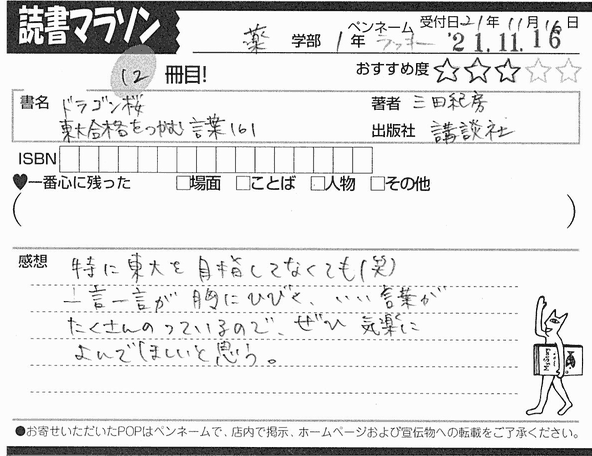 読書マラソン
薬 学部 1年 ペンネーム ラッキー 受付日21年11月16日
'21.11.16
12 冊目! おすすめ度 ☆☆☆☆☆
書名 ドラゴン桜
東大合格をつかむ言葉161
著者 三田紀房
出版社 講談社
ISBN
♥一番心に残った □場面 □ことば □人物 □その他
( )
感想 特に東大を目指してなくても(笑)
一言一言が胸にひびく、いい言葉が
たくさんのっているので、ぜひ気楽に
よんでほしいと思う。
●お寄せいただいたPOPはペンネームで、店内で掲示、ホームページおよび宣伝物への転載をご了承ください。